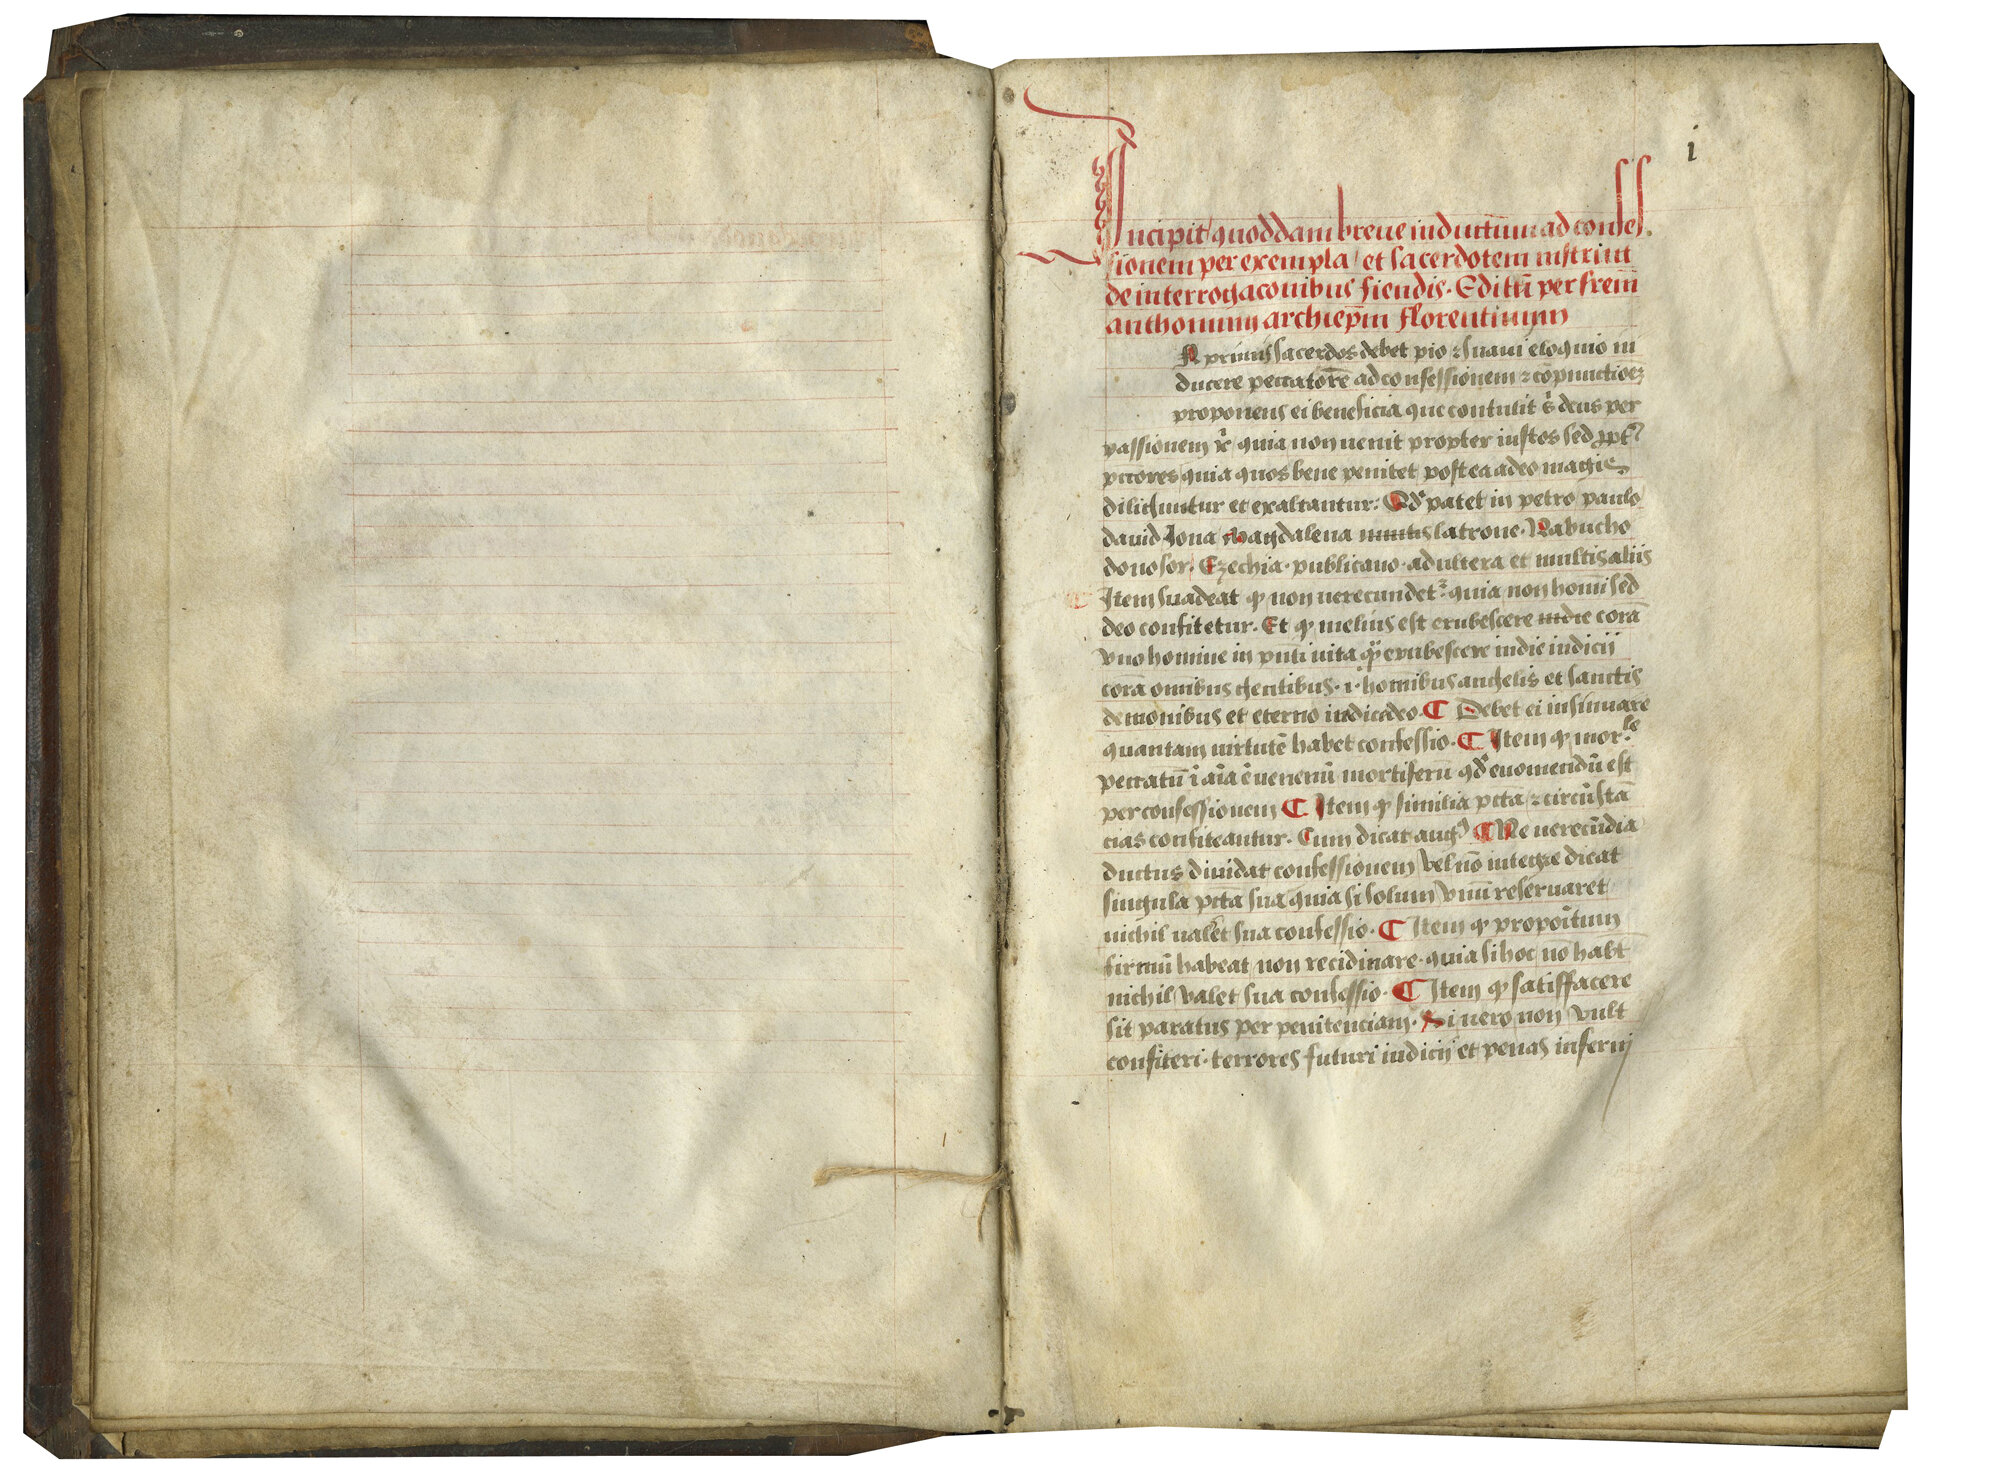 i
Incipit quoddam breue inductiuum ad confes
sionem per exempla / et sacerdotem instruit
de interrogacōnibus fiendis. Editū per frēm
anthonium archiepm̄ florentinum
primus sacerdos debet pio ⁊ suaui eloquio in
ducere peccatorē ad confessionem ⁊ cōpunctioeꝫ
proponens ei beneficia que contulit deus per
passionem quia non uenit propter iustos sed
pctores quia quos bene penitet postea adeo magis
diliguntur et exaltantur. patet in petro paulo
dauid Iona Magdalena latrone. Nabucho
donosor. Ezechia. publicano. adultera et multis aliis
¶ Item suadeat ꝙ non uerecundet᷑ quia non homī sed
deo confitetur. Et ꝙ melius est erubescere indie corā
vno homine in pn̄ti uita erubescere indie iudicij
corā omībus gentibus .i. homībus angelis et sanctis
demonibus et eterno iudici deo. ¶ Debet ei insinuare
quantam uirtutē habet confessio. ¶ Item ꝙ mor.le
peccatū ī aīa ē uenenū mortiferū qd̓ euomendū est
per confessionem ¶ Item ꝙ similia pctā ⁊ circūstā
cias confiteantur. Cum dicat aug᷒ ¶ Ne uerecūdia
ductus diuidat confessionem vel nō integre dicat
singula pctā sua quia si solum vnū reseruaret
nichil ualet sua confessio. ¶ Item ꝙ propoītum
firmū habeat non recidiuare. quia si hoc nō habt
nichil valet sua confessio. ¶ Item ꝙ satisffacere
sit paratus per penitenciam. Si uero non vult
confiteri. terrores futuri iudicij et penas inferni